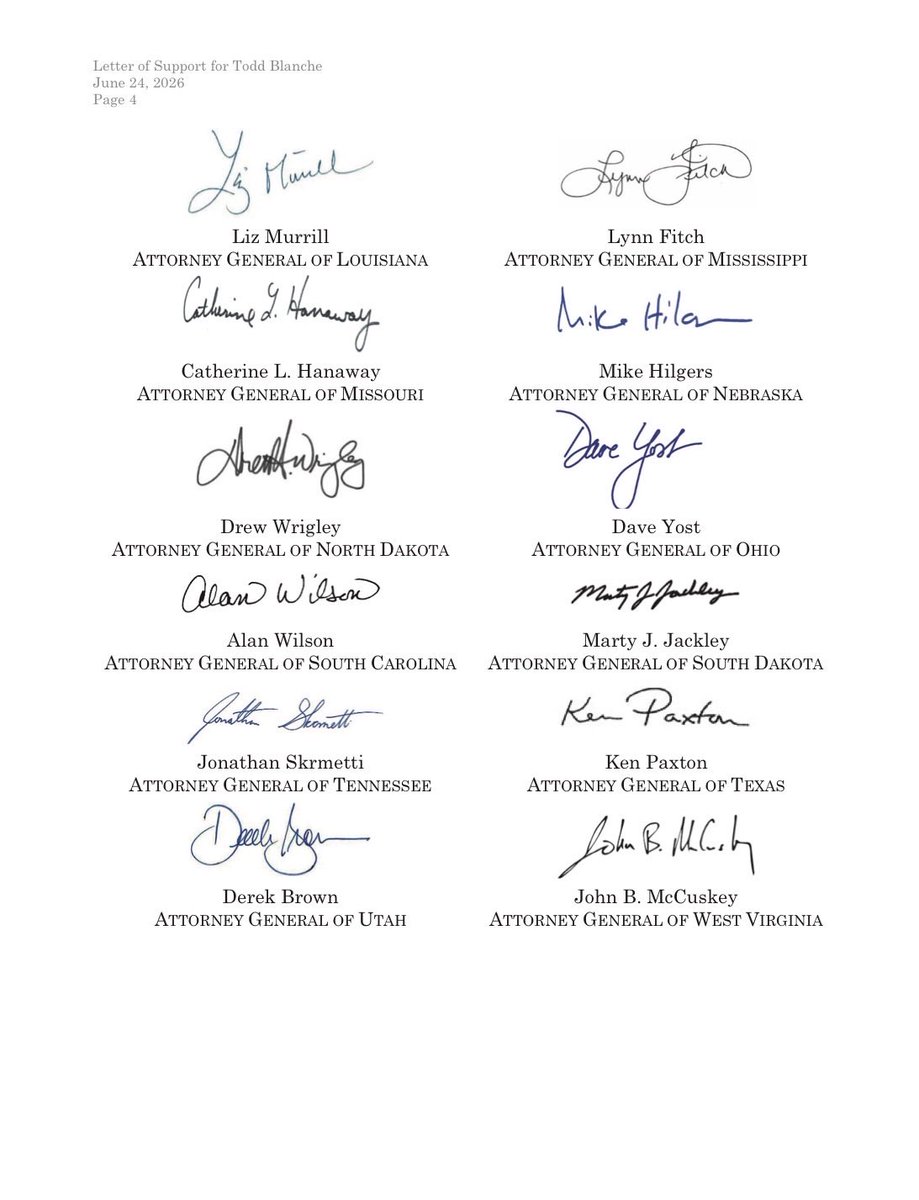 Letter of Support for Todd Blanche
June 24, 2026
Page 4
Liz Murrill
Lynn Fitch
Liz Murrill
ATTORNEY GENERAL OF LOUISIANA
Lynn Fitch
ATTORNEY GENERAL OF MISSISSIPPI
Catherine L. Hanaway
Mike Hil
Catherine L. Hanaway
ATTORNEY GENERAL OF MISSOURI
Mike Hilgers
ATTORNEY GENERAL OF NEBRASKA
Drew H. Wrigley
Dave Yost
Drew Wrigley
ATTORNEY GENERAL OF NORTH DAKOTA
Dave Yost
ATTORNEY GENERAL OF OHIO
Alan Wilson
Marty J. Jackley
Alan Wilson
ATTORNEY GENERAL OF SOUTH CAROLINA
Marty J. Jackley
ATTORNEY GENERAL OF SOUTH DAKOTA
Jonathan Skrmetti
Ken Paxton
Jonathan Skrmetti
ATTORNEY GENERAL OF TENNESSEE
Ken Paxton
ATTORNEY GENERAL OF TEXAS
Derek Brown
John B. McCuskey
Derek Brown
ATTORNEY GENERAL OF UTAH
John B. McCuskey
ATTORNEY GENERAL OF WEST VIRGINIA